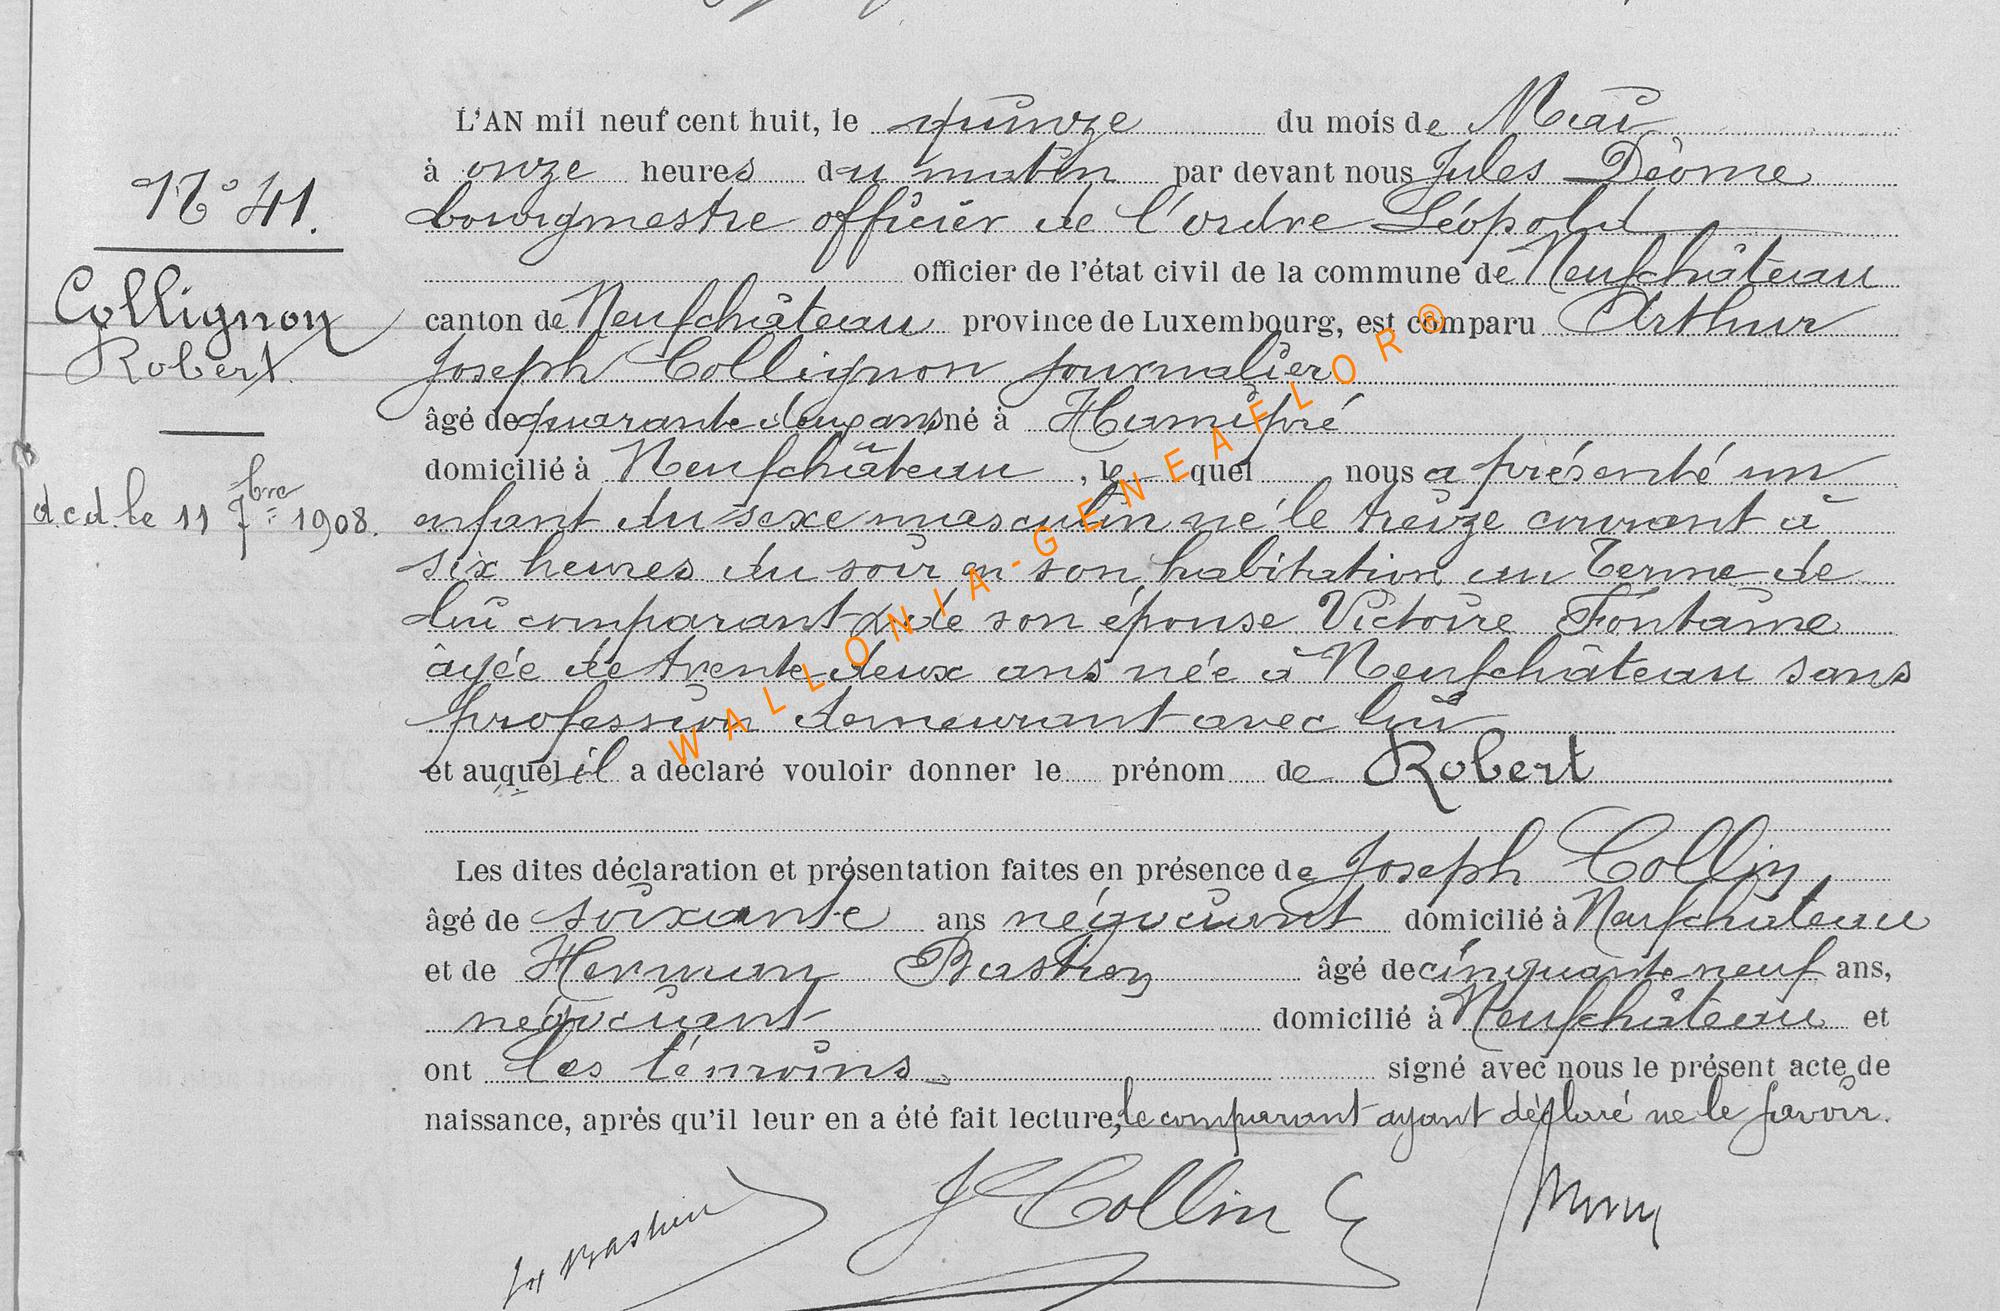 N° 41.
Collignon
Robert
dcd. le 11 7bre 1908.
L'AN mil neuf cent huit, le quinze du mois de Mai
à onze heures du matin par devant nous Jules Déome
bourgmestre officier de l'ordre Léopold
officier de l'état civil de la commune de Neufchâteau
canton de Neufchâteau province de Luxembourg, est comparu Arthur
Joseph Collignon journalier
âgé de quarante deux ans né à Hamipré
domicilié à Neufchâteau, lequel nous a présenté un
enfant du sexe masculin né le treize courant à
six heures du soir en son habitation au Terme de
lui comparant & de son épouse Victoire Fontaine
âgée de trente deux ans née à Neufchâteau sans
profession demeurant avec lui
et auquel il a déclaré vouloir donner le prénom de Robert
Les dites déclaration et présentation faites en présence de Joseph Collin
âgé de soixante ans négociant domicilié à Neufchâteau
et de Herman Bastien âgé de cinquante neuf ans,
négociant domicilié à Neufchâteau et
ont les témoins signé avec nous le présent acte de
naissance, après qu'il leur en a été fait lecture, le comparant ayant déclaré ne le savoir.
Bastien J Collin
WALLONIA-GENEAFLOR®